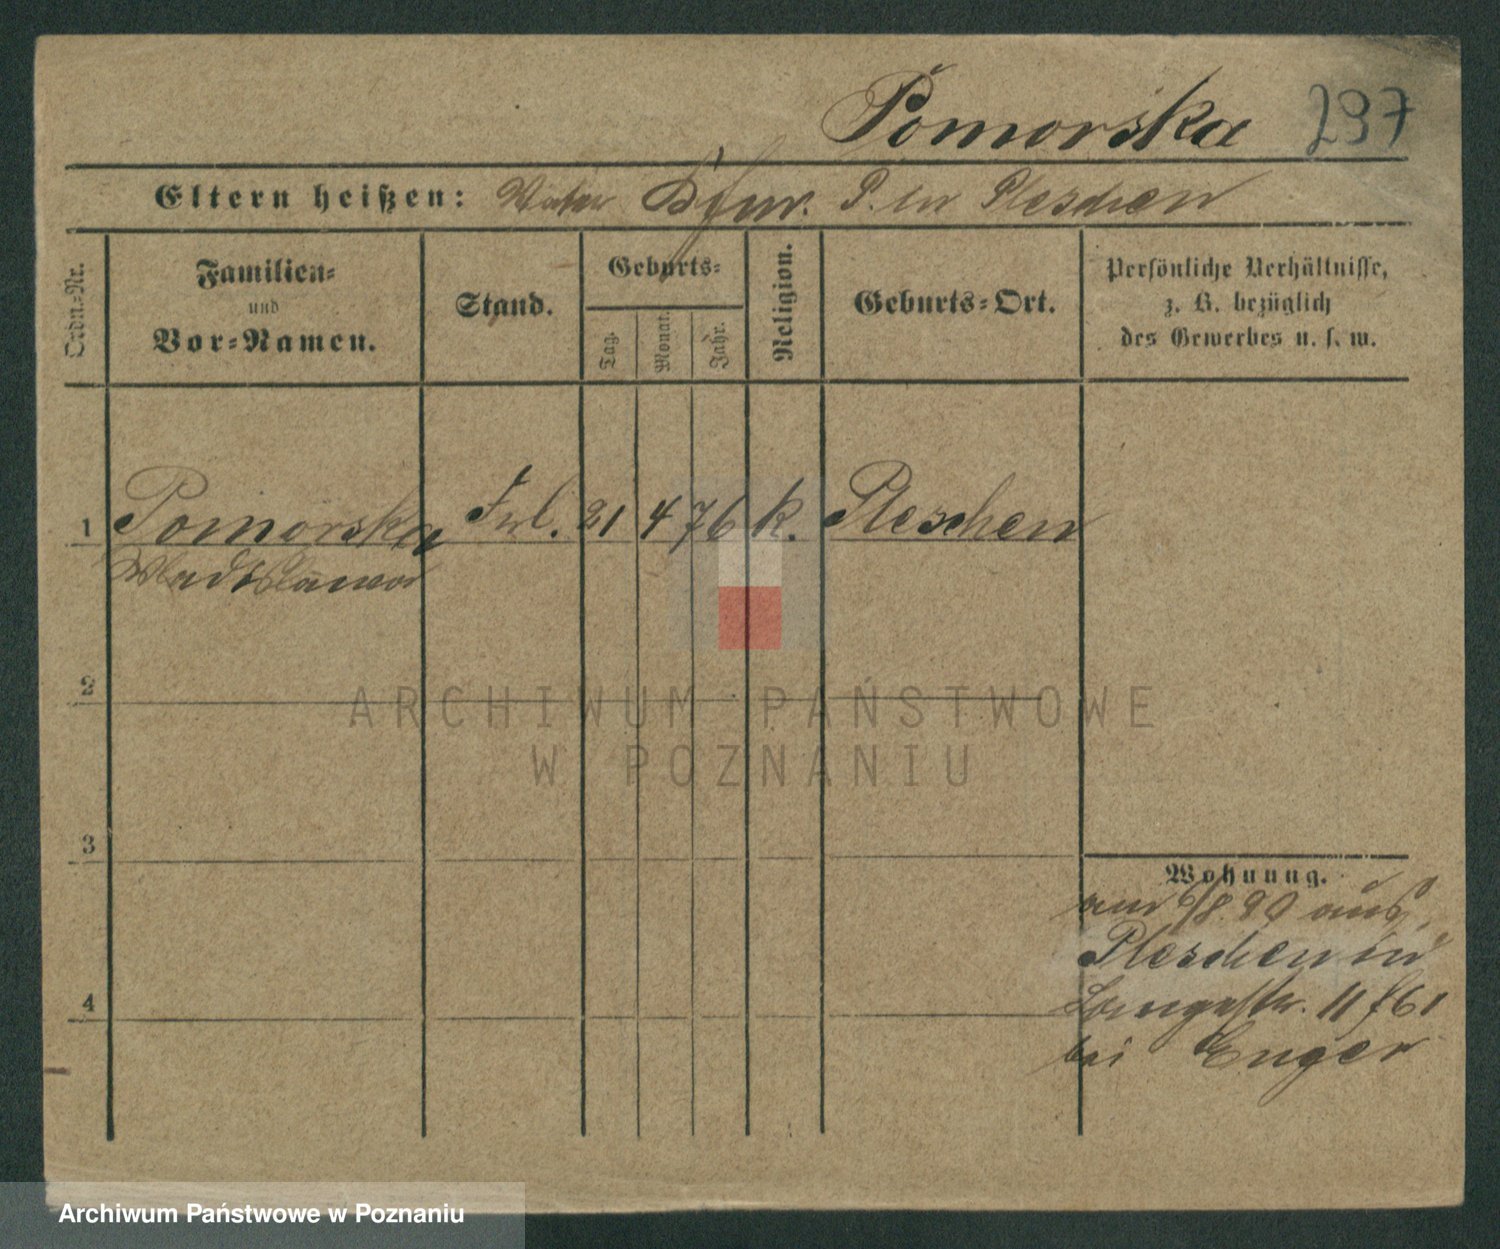 Pomorska 297
Eltern heißen: Vater P. in Pleschen
Ordn.-Nr.
Familien-
und
Vor-Namen.
Stand.
Geburts-
Tag.
Monat.
Jahr.
Religion.
Geburts-Ort.
Persönliche Verhältnisse,
z. B. bezüglich
des Gewerbes u. s. w.
1 Pomorska Frl. 21 4 76 k. Pleschen
Wladislawa
2
ARCHIWUM PAŃSTWOWE
W POZNANIU
3
Wohnung.
am 6/8.90 aus
Pleschen in
4
Langestr. 11 f61
bei Enger
Archiwum Państwowe w Poznaniu